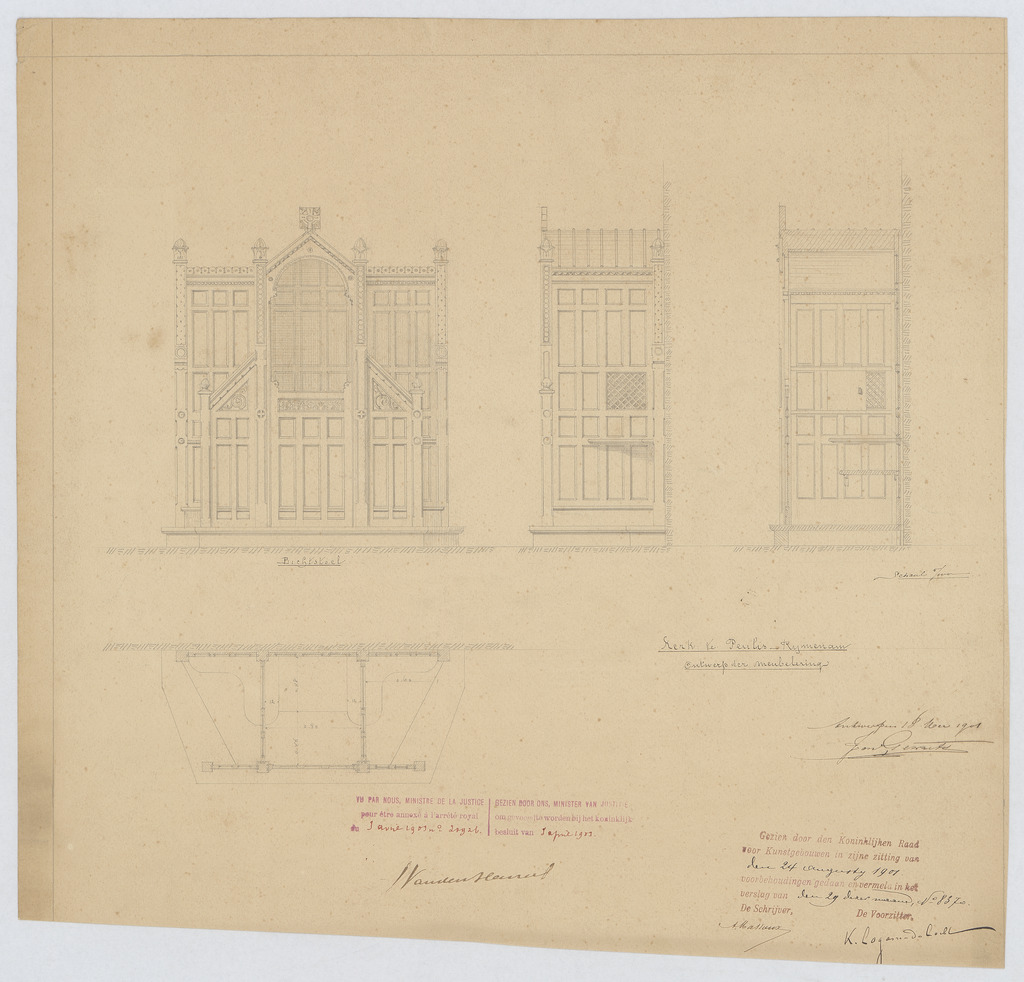 Biechtstoel
Schaal
Kerk te Peules-Rymenam
Ontwerp der meubeleering
Antwerpen 1901
VU PAR NOUS, MINISTRE DE LA JUSTICE
pour être annexé à l'arrêté royal
du 3 avril 1903 nº
GEZIEN DOOR ONS, MINISTER VAN JUSTICIE
om gevoegd te worden bij het koninklijk
besluit van 3 april 1903.
Gezien door den Koninklijken Raad
voor Kunstgebouwen in zijne zitting van
den 24 augusty 1901
voorbehoudingen gedaan en vermeld in het
verslag van den 29 dezer maand, Nº
De Schrijver,
De Voorzitter,